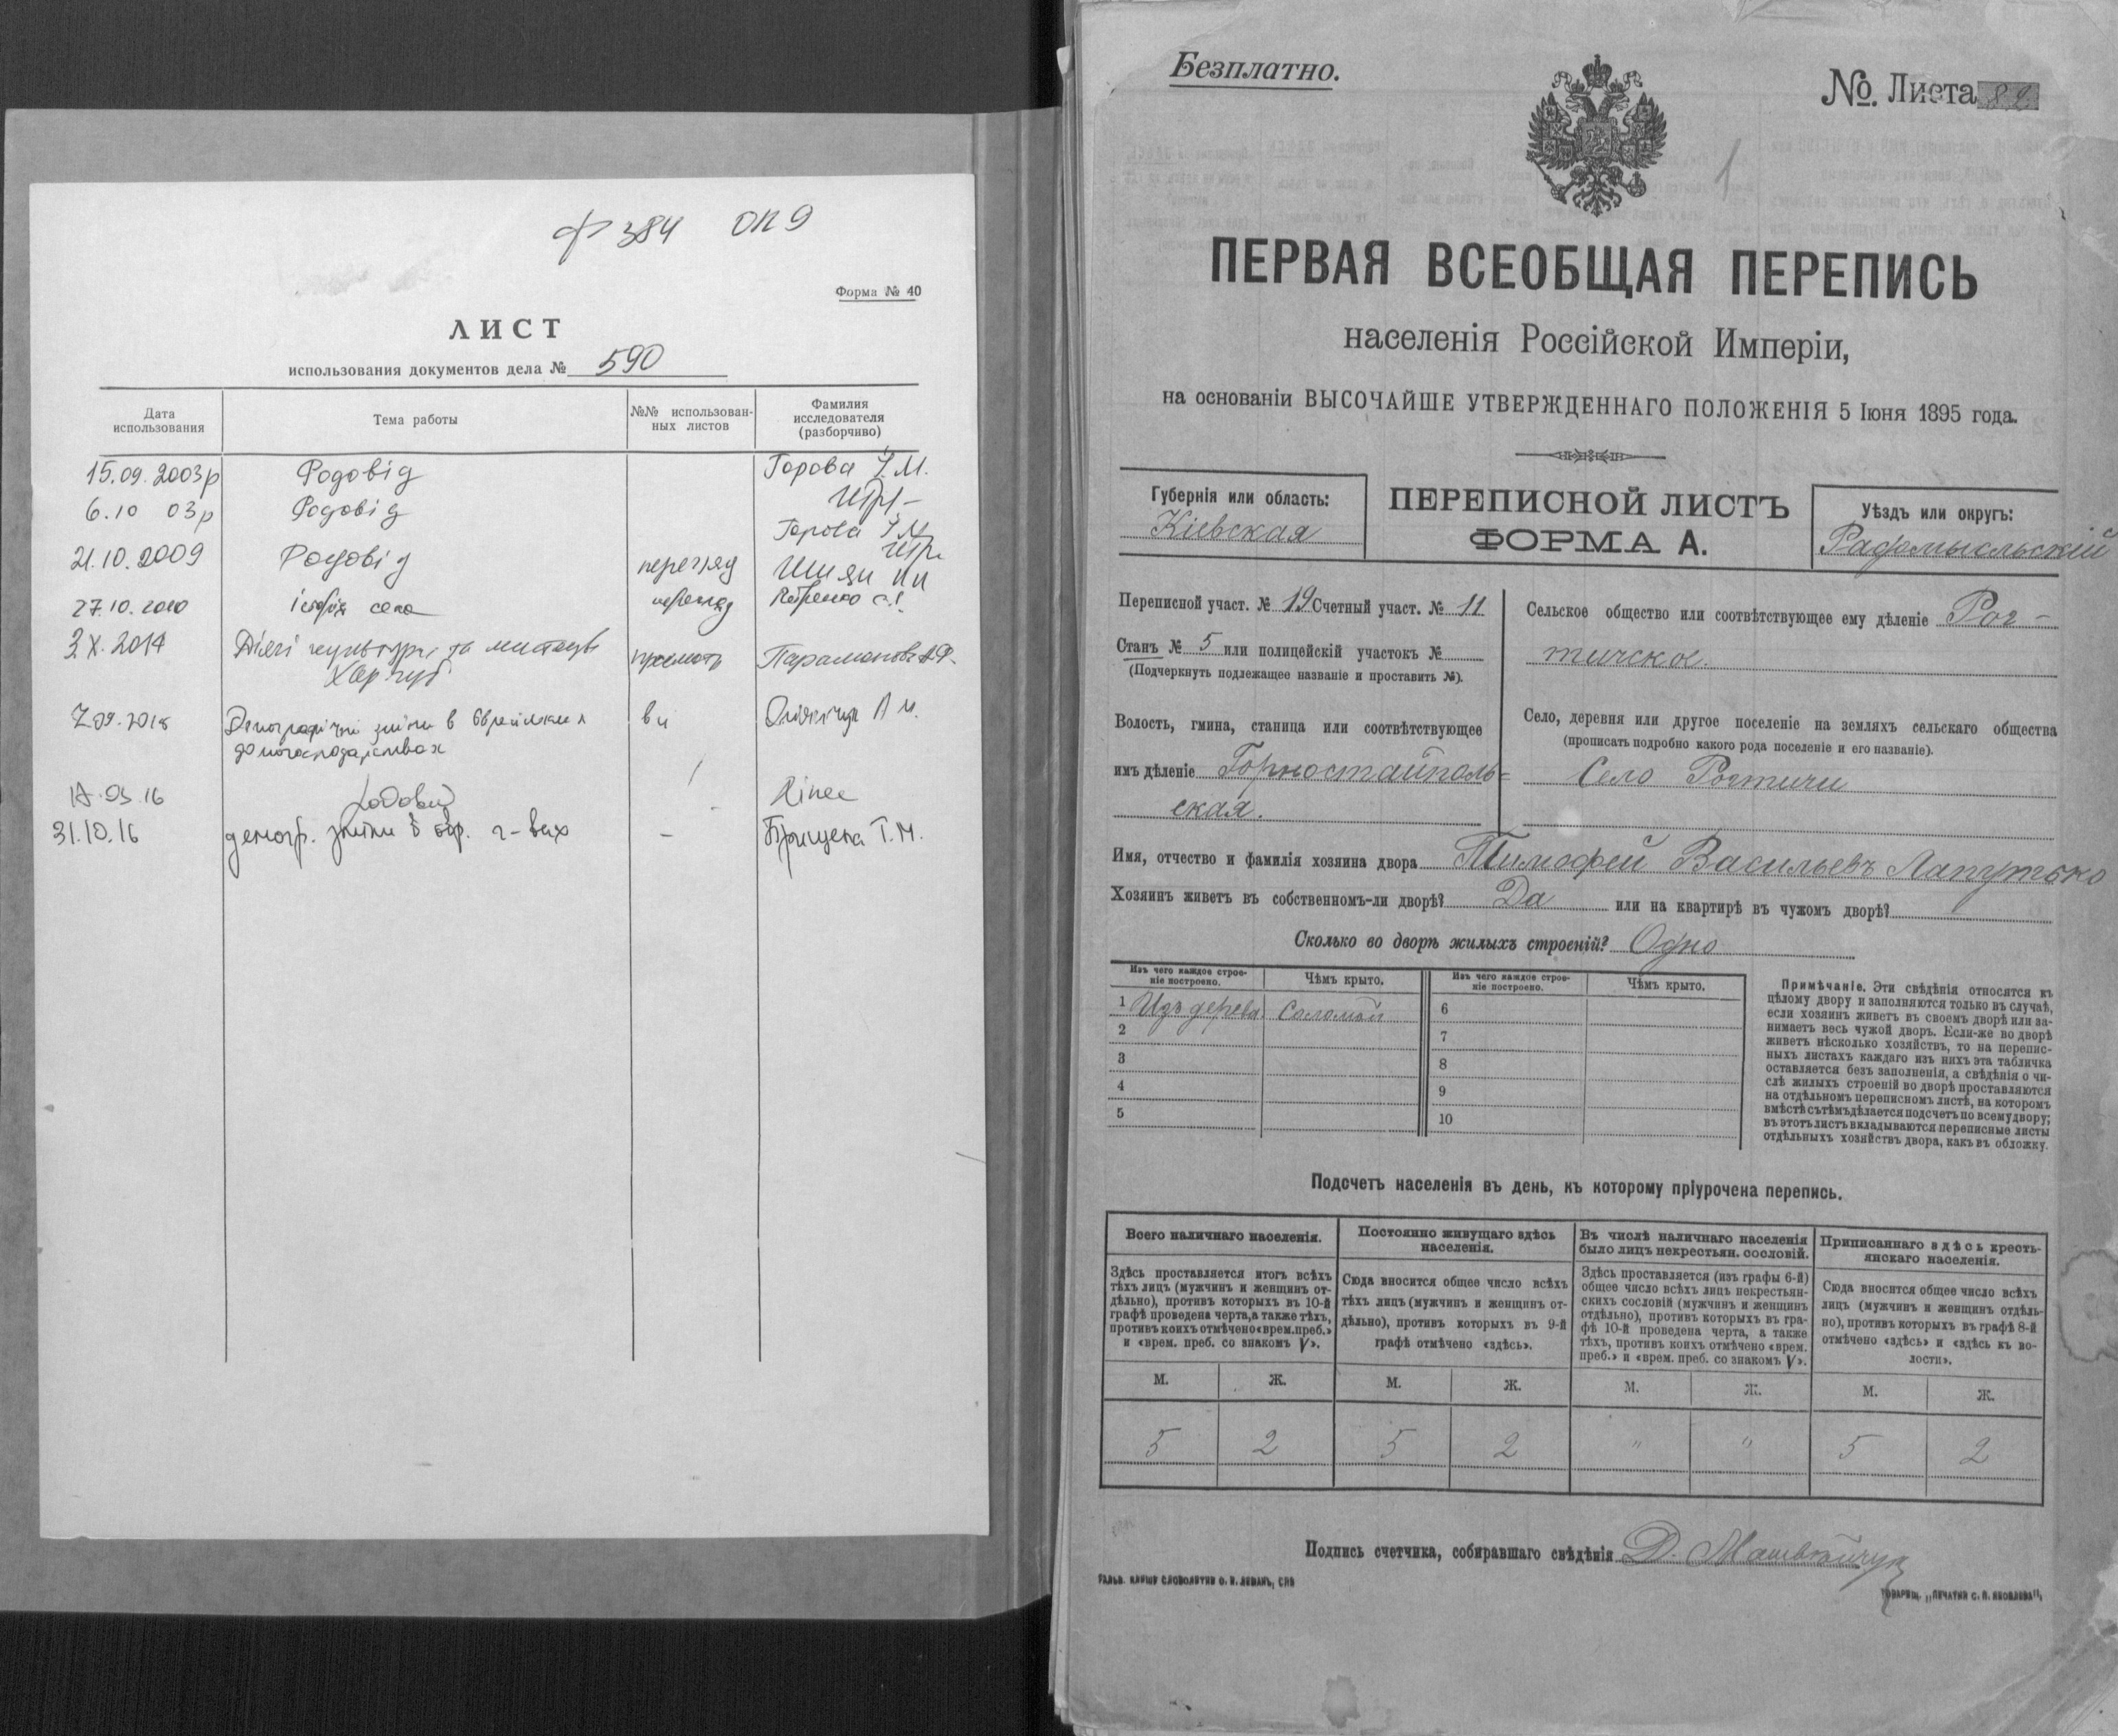 Ф 384 оп 9
Форма № 40
ЛИСТ
использования документов дела № 590
Дата использования
Тема работы
№№ использован-
ных листов
Фамилия
исследователя
(разборчиво)
15.09.2003р Родовід Горова І.М.
6.10 03р Родовід
Горова І М
21.10.2009 Родовід перегляд
27.10.2010 історія села перегляд
3.X.2014 Діячі культури та мистецтв
7.09.2015 Демографічні зміни в єврейських
домогосподарствах
17.03.16 Родовід
31.10.16 демогр. зміни в євр. г-вах – Брицека Т.М.
Безплатно.
№. Листа 82
1
ПЕРВАЯ ВСЕОБЩАЯ ПЕРЕПИСЬ
населенія Россійской Имперіи,
на основаніи ВЫСОЧАЙШЕ УТВЕРЖДЕННАГО ПОЛОЖЕНІЯ 5 Іюня 1895 года.
Губернія или область:
Кіевская
ПЕРЕПИСНОЙ ЛИСТЪ
ФОРМА А.
Уѣздъ или округъ:
Радомысльскій
Переписной участ. № 19 Счетный участ. № 11
Станъ № 5 или полицейскій участокъ №
(Подчеркнуть подлежащее названіе и проставить №).
Волость, гмина, станица или соотвѣтствующее
имъ дѣленіе Горностайполь-
ская.
Сельское общество или соотвѣтствующее ему дѣленіе Рот-
тичское.
Село, деревня или другое поселеніе на земляхъ сельскаго общества
(прописать подробно какого рода поселеніе и его названіе).
Село Ротичи
Имя, отчество и фамилія хозяина двора Тимофей Васильевъ Лапутько
Хозяинъ живетъ въ собственномъ-ли дворѣ? Да или на квартирѣ въ чужомъ дворѣ?
Сколько во дворѣ жилыхъ строеній? Одно
Изъ чего каждое строе-
ніе построено.
Чѣмъ крыто.
Изъ чего каждое строе-
ніе построено.
Чѣмъ крыто.
1 Изъ дерева. Соломой 6
2 7
3 8
4 9
5 10
Примѣчаніе. Эти свѣдѣнія относятся къ
цѣлому двору и заполняются только въ случаѣ,
если хозяинъ живетъ въ своемъ дворѣ или за-
нимаетъ весь чужой дворъ. Если-же во дворѣ
живетъ нѣсколько хозяйствъ, то на перепис-
ныхъ листахъ каждаго изъ нихъ эта табличка
оставляется безъ заполненія, а свѣдѣнія о чи-
слѣ жилыхъ строеній во дворѣ проставляются
на отдѣльномъ переписномъ листѣ, на которомъ
вмѣстѣ съ тѣмъ дѣлается подсчетъ по всему двору;
въ этотъ листъ вкладываются переписные листы
отдѣльныхъ хозяйствъ двора, какъ въ обложку.
Подсчетъ населенія въ день, къ которому пріурочена перепись.
Всего наличнаго населенія.
Здѣсь проставляется итогъ всѣхъ
тѣхъ лицъ (мужчинъ и женщинъ от-
дѣльно), противъ которыхъ въ 10-й
графѣ проведена черта, а также тѣхъ,
противъ коихъ отмѣчено «врем. преб.»
и «врем. преб. со знакомъ V».
Постоянно живущаго здѣсь
населенія.
Сюда вносится общее число всѣхъ
тѣхъ лицъ (мужчинъ и женщинъ от-
дѣльно), противъ которыхъ въ 9-й
графѣ отмѣчено «здѣсь».
Въ числѣ наличнаго населенія
было лицъ некрестьян. сословій.
Здѣсь проставляется (изъ графы 6-й)
общее число всѣхъ лицъ некрестьян-
скихъ сословій (мужчинъ и женщинъ
отдѣльно), противъ которыхъ въ гра-
фѣ 10-й проведена черта, а также
тѣхъ, противъ коихъ отмѣчено «врем.
преб.» и «врем. преб. со знакомъ V».
Приписаннаго здѣсь кресть-
янскаго населенія.
Сюда вносится общее число всѣхъ
лицъ (мужчинъ и женщинъ отдѣль-
но), противъ которыхъ въ графѣ 8-й
отмѣчено «здѣсь» и «здѣсь къ во-
лости».
М. Ж. М. Ж. М. Ж. М. Ж.
5 2 5 2 " " 5 2
Подпись счетчика, собиравшаго свѣдѣнія Д.
Гальв. клише словолитни О. И. Леманъ, СПБ
Товарищ. „Печатня С. П. Яковлева",